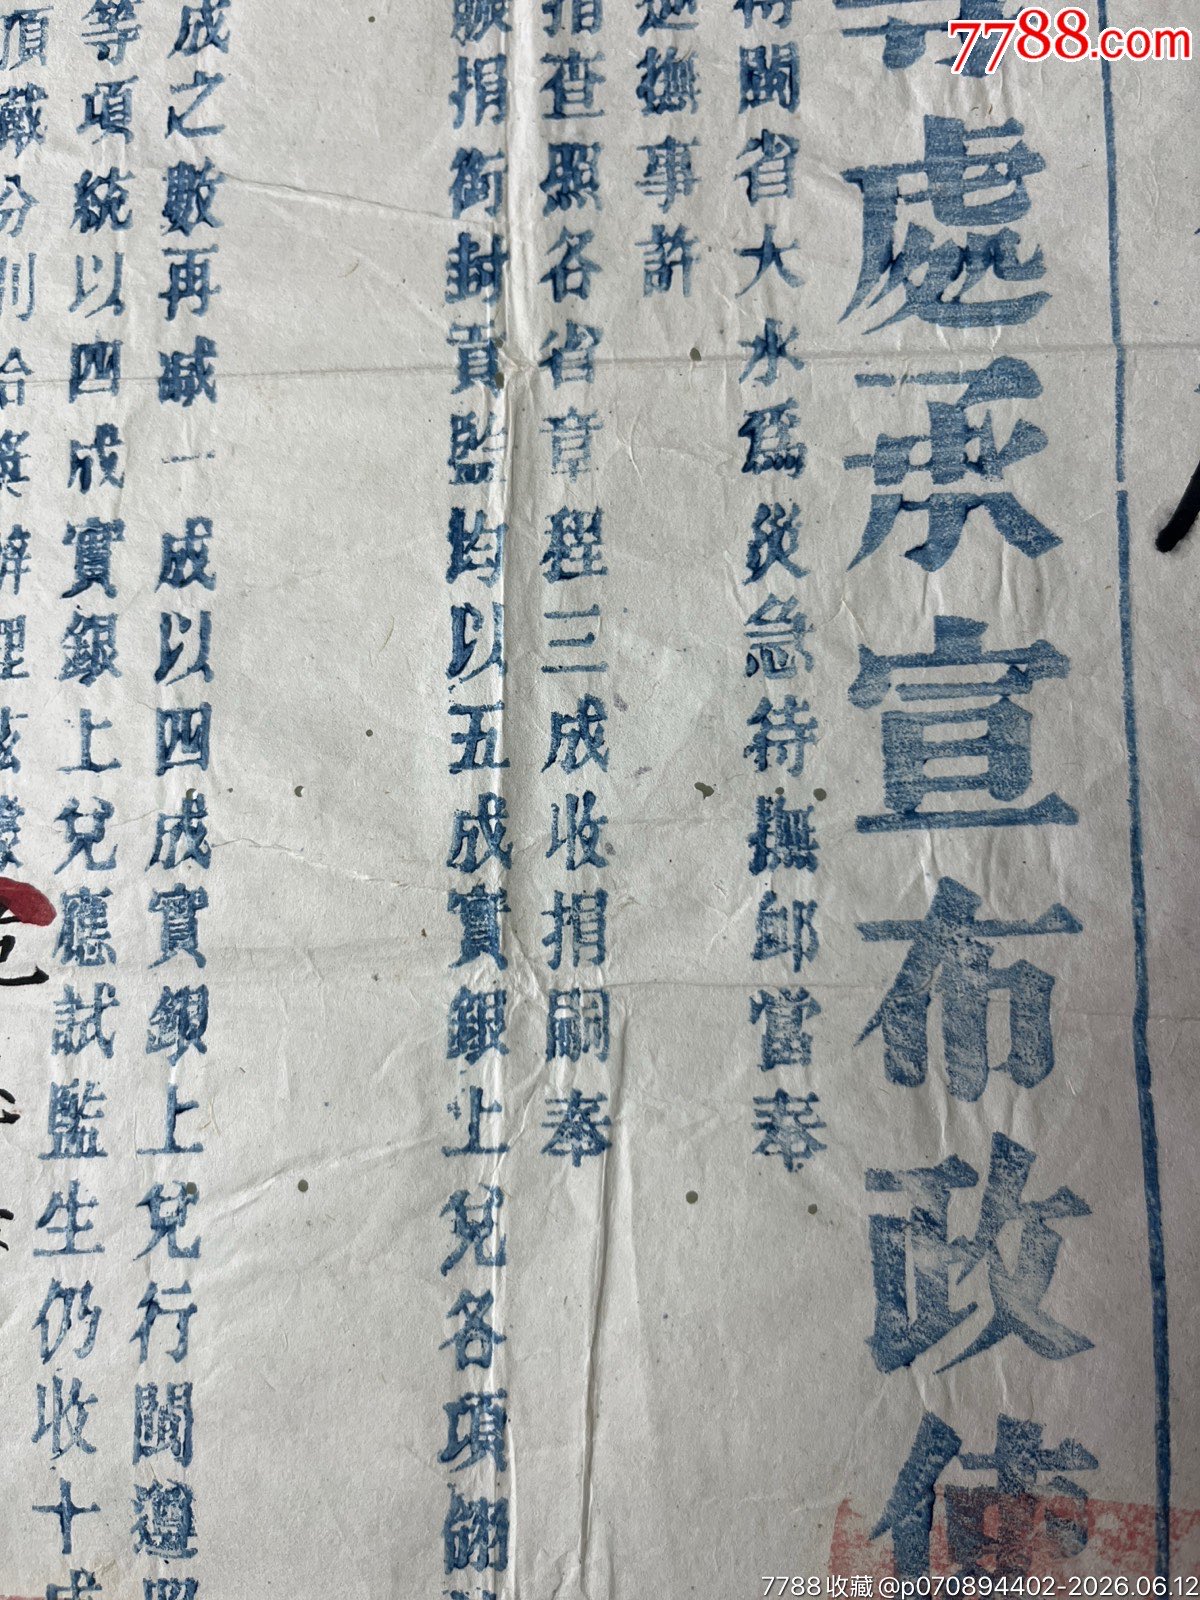 7788.com
處承宣布政使
閩省大水為災急待撫卹當奉
巡撫事許
指查照各省章程三成收捐嗣奉
捐銜封貢監均以五成實銀上兌各項翎
成之數再减一成以四成實銀上兌行閩遵照
等項統以四成實銀上兌應試監生仍收十成
頂戴分別給獎辦理
7788收藏@p070894402-2026.06.12